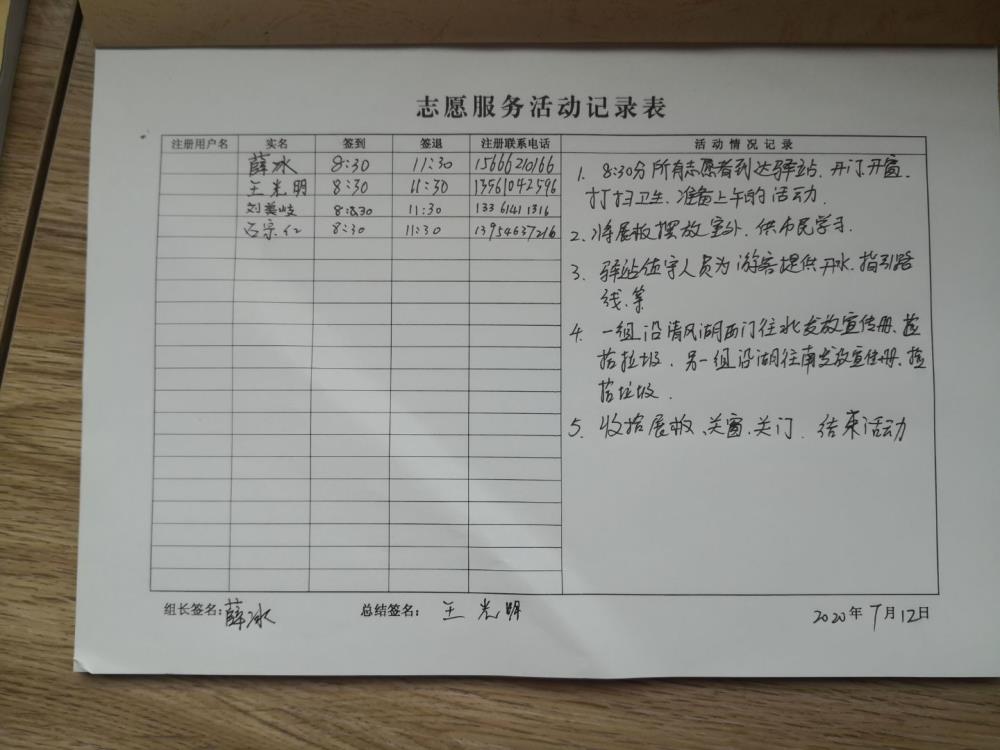 志愿服务活动记录表
注册用户名 实名 签到 签退 注册联系电话 活动情况记录
薛冰 8:30 11:30 15666210166
王光明 8:30 11:30 13561042596
刘美岐 8:30 11:30 13361411316
宗仁 8:30 11:30 13954637216
1. 8:30分所有志愿者到达驿站.开门.开窗.
打扫卫生.准备上午的活动.
2.将展板摆放室外.供市民学习.
3. 驿站值守人员为游客提供开水.指引路
线.等
4. 一组沿清风湖西门往北发放宣传册.捡
拾垃圾.另一组沿湖往南发放宣传册.捡
拾垃圾.
5. 收拾展板、关窗.关门.结束活动
组长签名:薛冰 总结签名:王光明 2020年7月12日